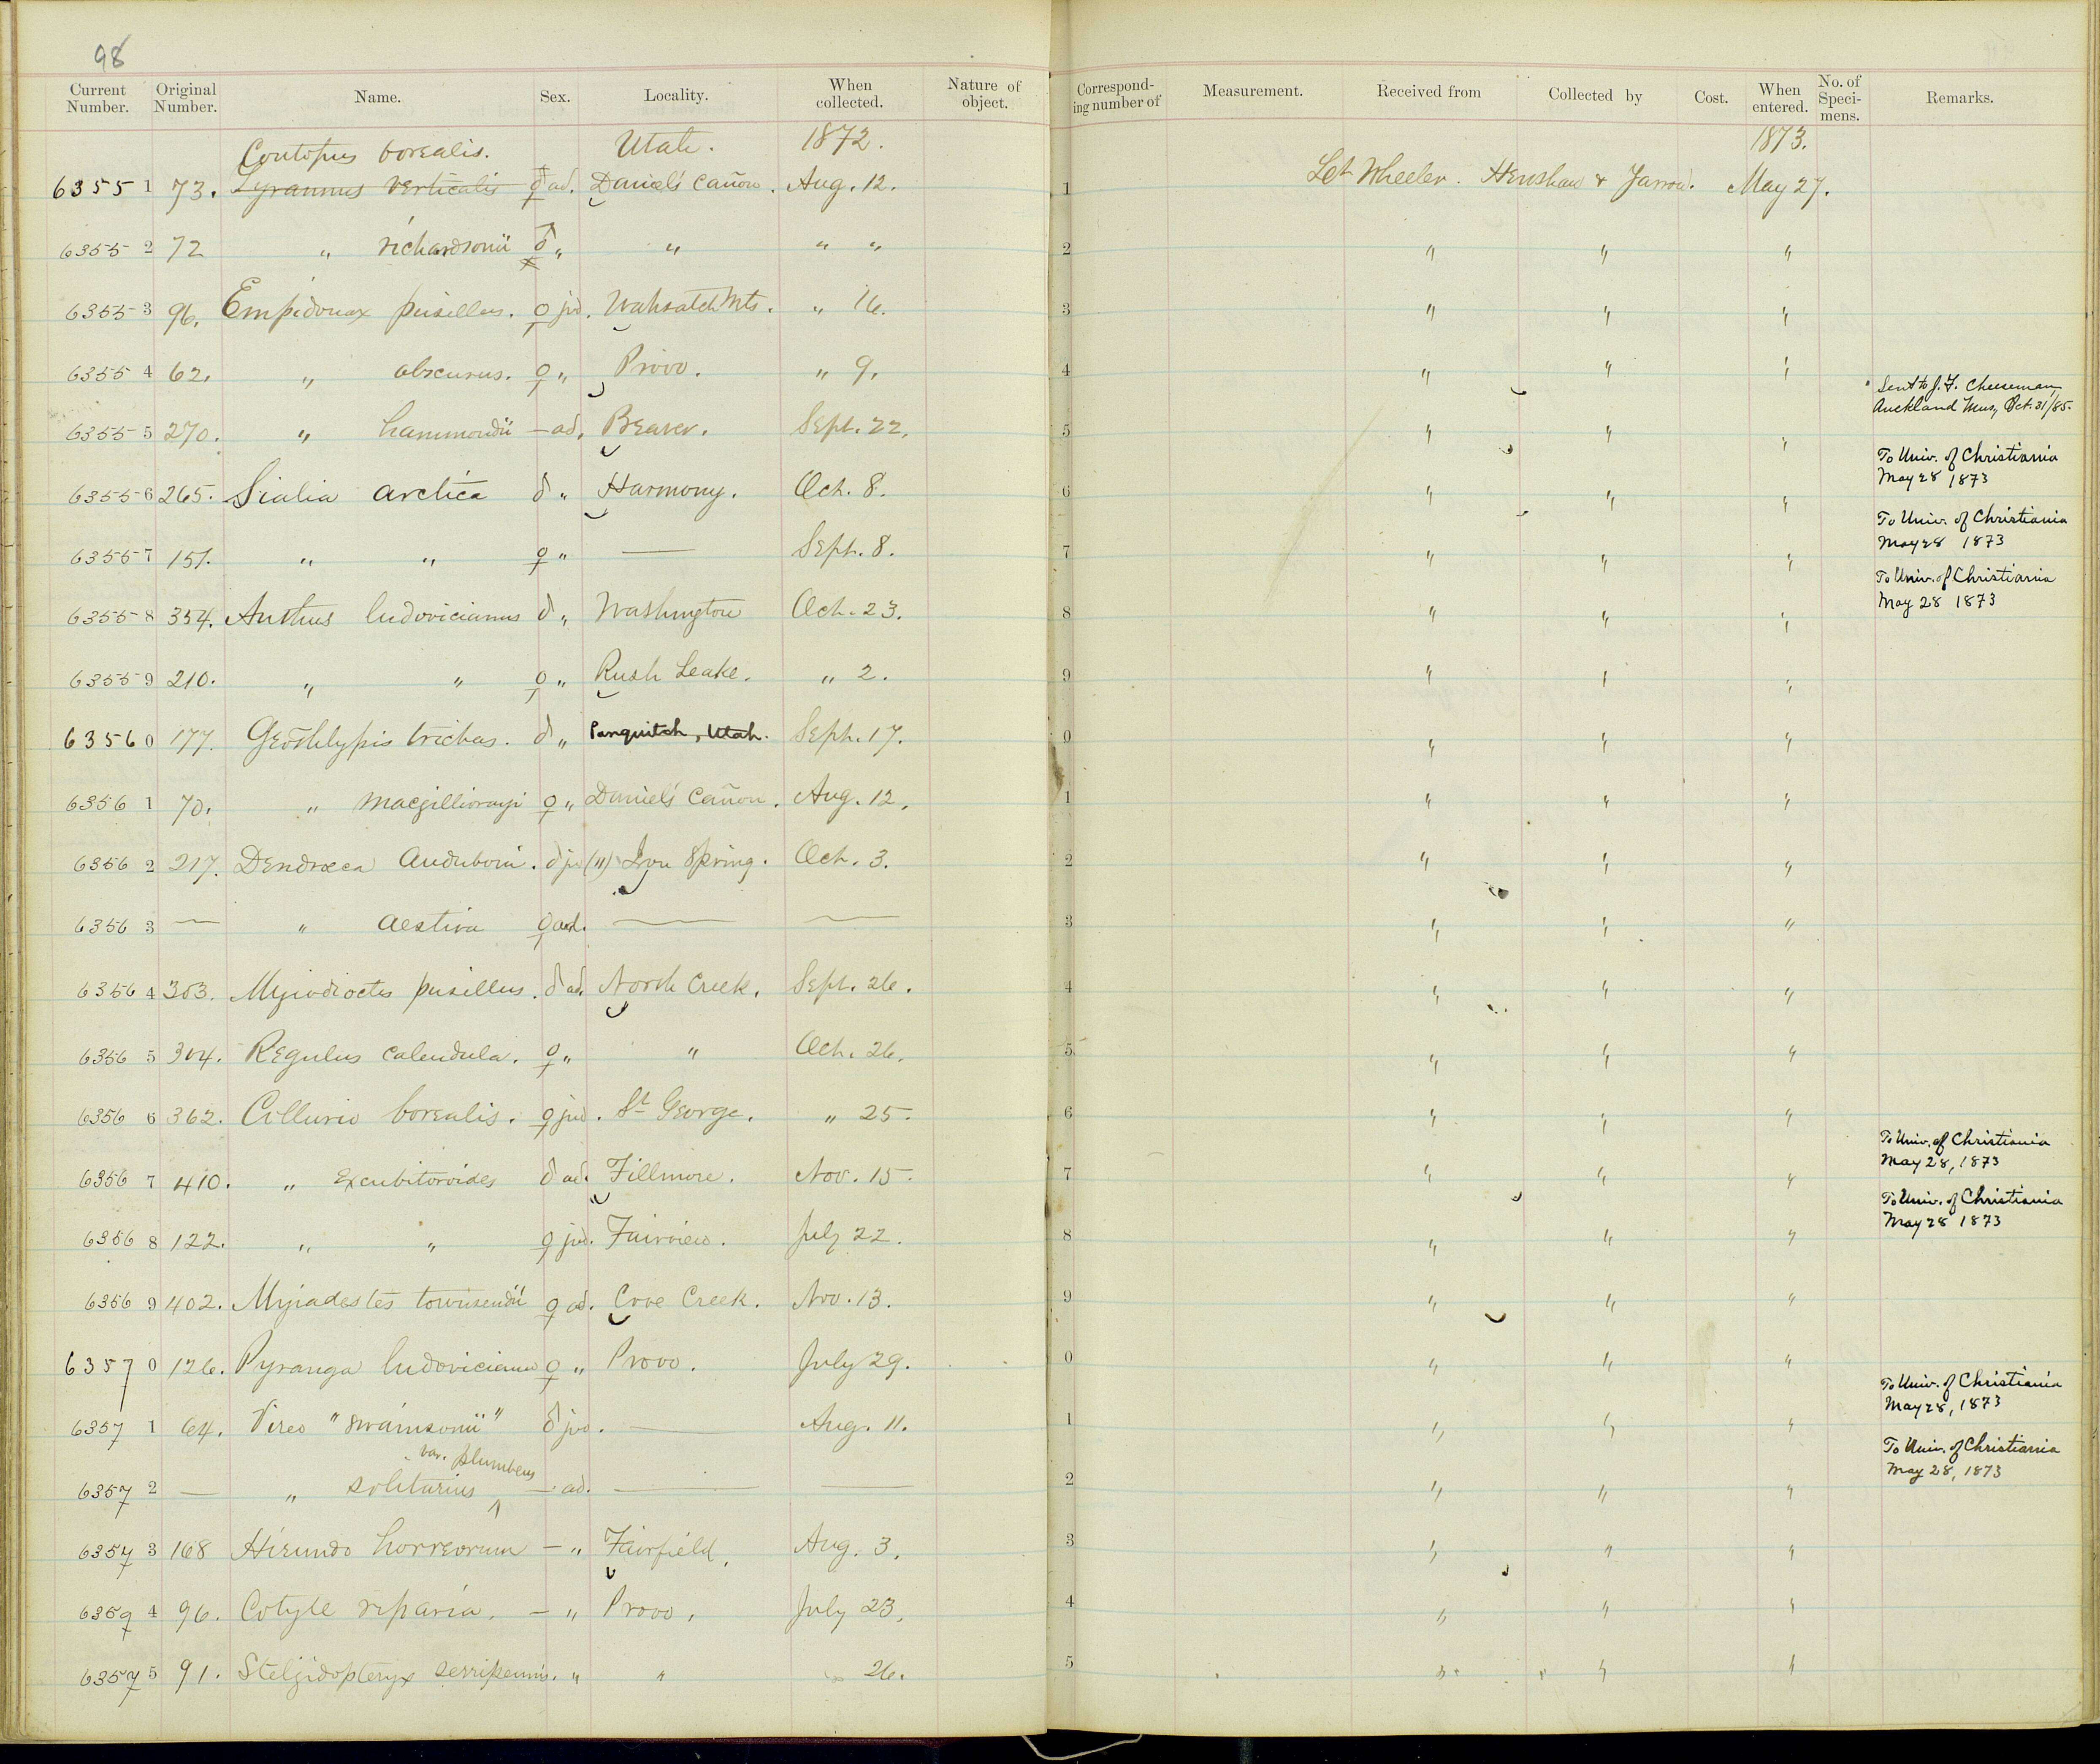 98
Current Number. Original Number. Name. Sex. Locality. When collected. Nature of object. Corresponding number of Measurement. Received from Collected by Cost. When entered. No. of Specimens. Remarks.
Contopus borealis. Utah. 1872. 1873.
63551 73. Tyrannus verticalis ♂♀ ad. Daniel's Cañon. Aug. 12. 1 Lt Wheeler. Henshaw & Yarrow. May 27.
63552 72 " richardsonii ♂ " " " " 2 " " "
63553 96. Empidonax pusillus. ♀ juv. Wahsatch Mts. " 16. 3 " " "
63554 62. " obscurus. ♀ " Provo. " 9. 4 " " "
Sent to J. F. Cheeseman,
Auckland Mus, Oct. 31/85.
63555 270. " hammondii — ad. Beaver. Sept. 22. 5 " " "
To Univ. of Christiania
May 28 1873
63556 265. Sialia arctica ♂ " Harmony. Oct. 8. 6 " " "
To Univ. of Christiania
May 28 1873
63557 151. " " ♀ " — Sept. 8. 7 " " "
To Univ. of Christiania
May 28 1873
63558 354. Anthus ludovicianus ♂ " Washington Oct. 23. 8 " " "
63559 210. " " ♀ " Rush Leake. " 2. 9 " " "
63560 177. Geothlypis trichas. ♂ " Panquitch, Utah. Sept. 17. 0 " " "
63561 70. " macgillivrayi ♀ " Daniel's Cañon. Aug. 12. 1 " " "
63562 217. Dendroeca Auduboni. ♂ juv (") Iron Spring. Oct. 3. 2 " " "
63563 — " aestiva ♀ ad. — — 3 " " "
63564 303. Myiodioctes pusillus. ♂ ad. North Creek. Sept. 26. 4 " " "
63565 304. Regulus calendula. ♀ " " Oct. 26. 5 " " "
63566 362. Collurio borealis. ♀ juv. St George. " 25. 6 " " "
To Univ. of Christiania
May 28, 1873
63567 410. " Excubitoroides ♂ ad. Fillmore. Nov. 15. 7 " " "
To Univ. of Christiania
May 28 1873
63568 122. " " ♀ juv. Fairview. July 22. 8 " " "
63569 402. Myiadestes townsendii ♀ ad. Cove Creek. Nov. 13. 9 " " "
63570 126. Pyranga ludoviciana ♀ " Provo. July 29. 0 " " "
To Univ. of Christiania
May 28, 1873
63571 64. Vireo "swainsonii" ♂ juv. — Aug. 11. 1 " " "
var. plumbeus
To Univ. of Christiania
May 28, 1873
63572 — " solitarius ^ — ad. — — 2 " " "
63573 168 Hirundo horreorum — " Fairfield. Aug. 3. 3 " " "
63574 96. Cotyle riparia. — " Provo. July 23. 4 " " "
63575 91. Stelgidopteryx serripennis. " " " 26. 5 " " "